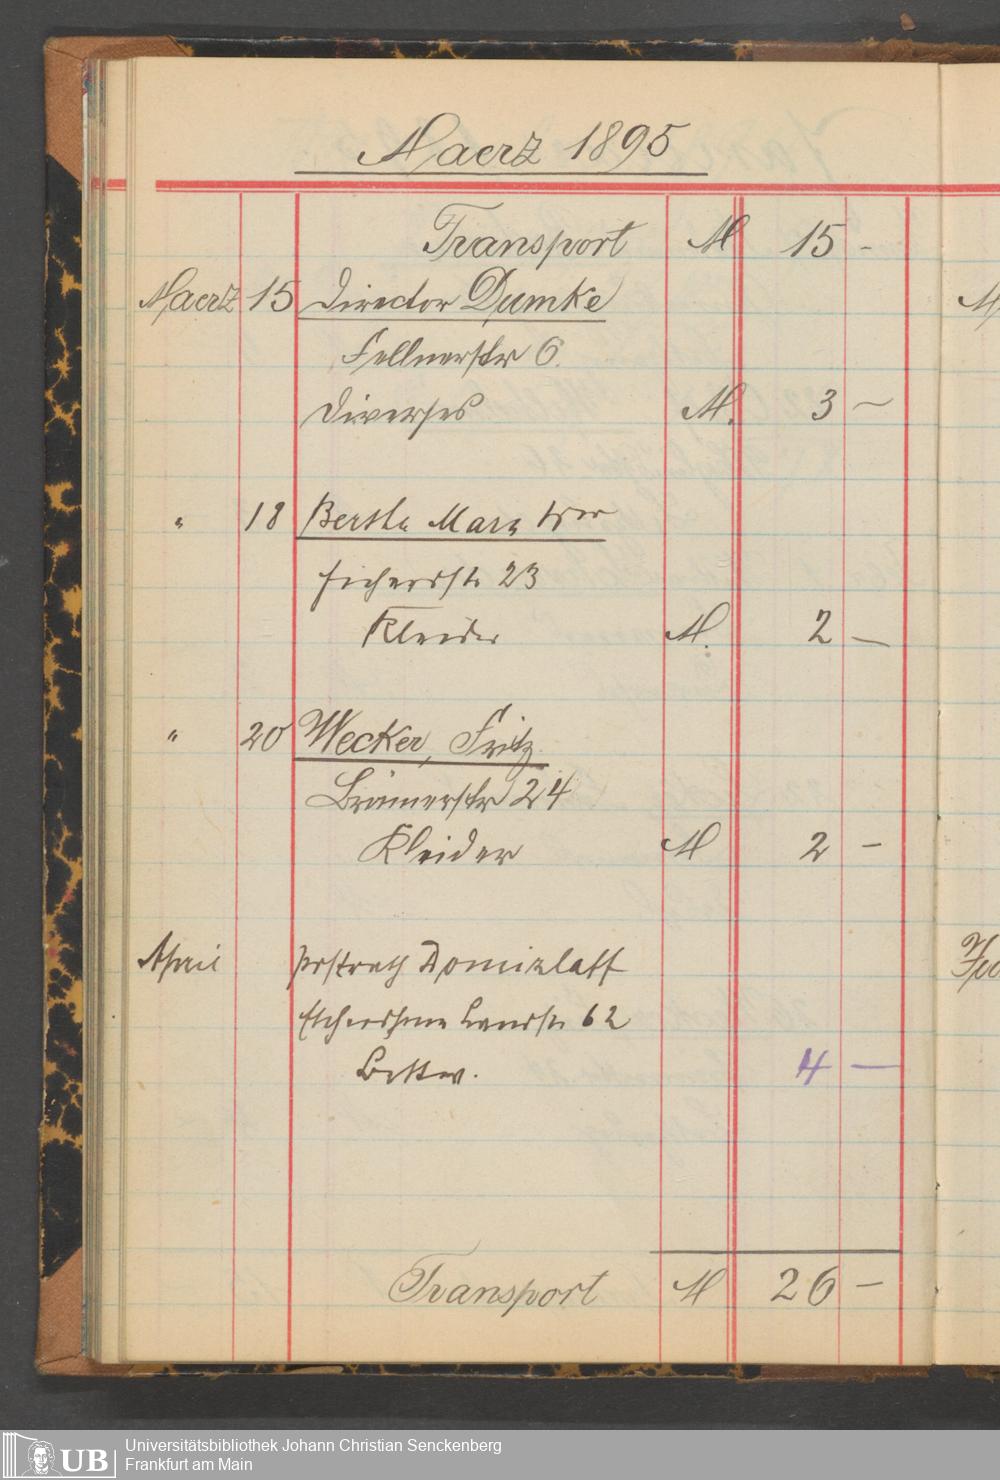 Maerz 1895
Transport M 15 -
Maerz 15 Director Dumke
Fellnerstr 6.
Diverses M. 3 –
" 18 Bertha Marx Wwe
23
Kleider M. 2 –
" 20 Wecker, Fritz
Brönnerstr 24
Kleider M 2 –
April Postrath Domizlaff
Eschersheim Landstr 62
Bettw. 4 –
Transport M 26 –
M
UB
Universitätsbibliothek Johann Christian Senckenberg
Frankfurt am Main